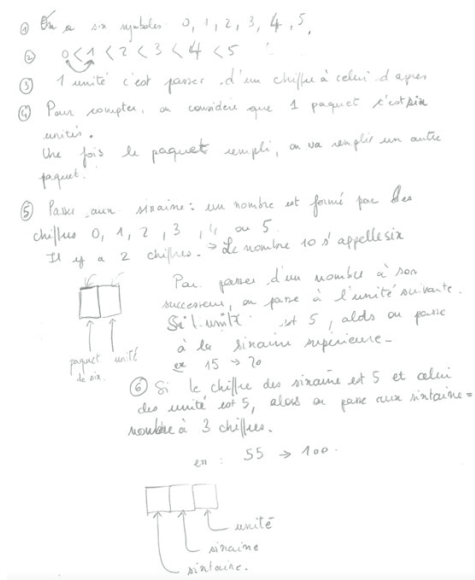 ① On a six symboles 0, 1, 2, 3, 4, 5,
② 0 < 1 < 2 < 3 < 4 < 5
③ 1 unité c'est passer d'un chiffre à celui d'apres
④ Pour compter, on considère que 1 paquet c'est six
unités.
Une fois le paquet rempli, on va remplir un autre
paquet.
⑤ Passer aux sixaine : un nombre est formé par des
chiffres 0, 1, 2, 3, 4 ou 5.
Il y a 2 chiffres. → Le nombre 10 s'appelle six
Par passer d'un nombre à son
successeur, on passe à l'unité suivante.
Si l'unité est 5, alors on passe
à la sixaine supérieure.
ex 15 → 20
paquet de six.
unité
⑥ Si le chiffre des sixaine est 5 et celui
des unité est 5, alors on passe aux sixtaine =
nombre à 3 chiffres.
ex : 55 → 100.
unité
sixaine
sixtaine.